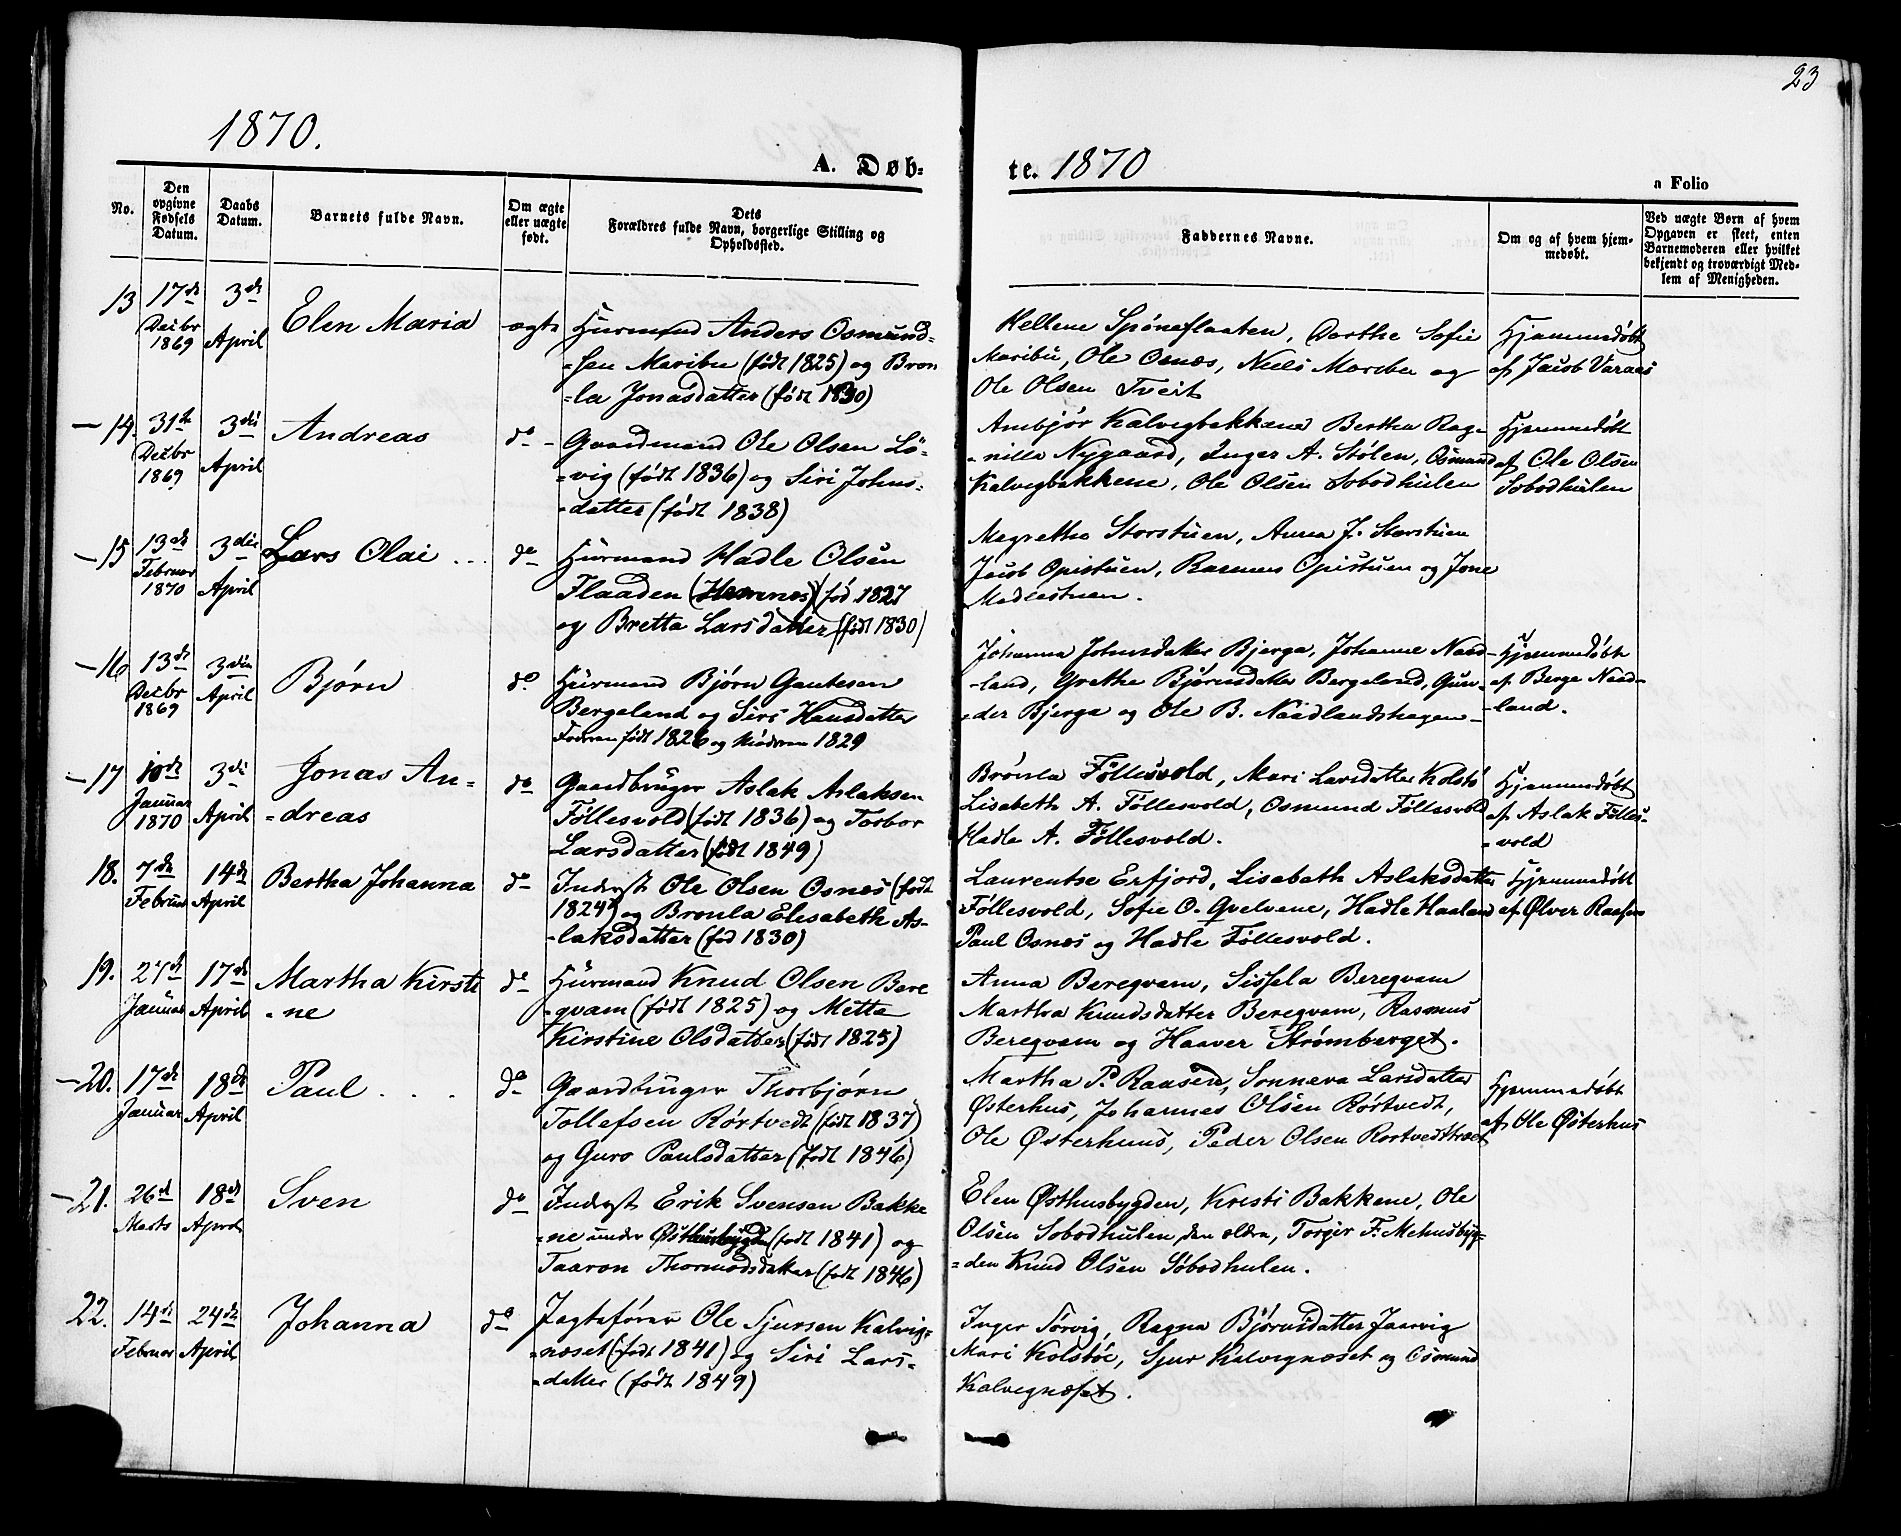 23
1870.
A. Døb-
te. 1870
a Folio
No.
Den
opgivne
Fødsels
Datum.
Daabs
Datum.
Barnets fulde Navn.
Om ægte
eller uægte
født.
Dets
Forældres fulde Navn, borgerlige Stilling og
Opholdssted.
Faddernes Navne.
Om og af hvem hjem-
medøbt.
Ved uægte Børn af hvem
Opgaven er skeet, enten
Barnemoderen eller hvilket
bekjendt og troværdigt Med-
lem af Menigheden.
13
17de
Decbr
1869
3de
April
Elen Maria
ægte
Huurmand Anders Osmund-
-sen Maribu (født 1825) og Bron
-la Jonasdatter (født 1830)
Hellene Spøneflaaten, Dorthe Sofie
Maribu, Ole Osnes, Niels Maribu og
Ole Olsen Tveit
Hjemmedøbt
af Jacob Varaas
14.
31te
Decbr
1869
3die
April
Andreas
do
Gaardmand Ole Olsen Lö-
-vig (født 1836) og Siri Johns-
-datter (født 1838)
Ambjör Kalvigbakkene Bertha Rag-
-nille Nygaard, Inger A. Stølen, Osmund
Kalvigbakkene, Ole Olsen Sobodhulen
Hjemmedøbt
af Ole Olsen
Sobodhulen
15
13de
Februar
1870
3die
April
Lars Olai
do
Huurmand Hadle Olsen
Flaaden (Hæknes) (fød 1827
og Bretta Larsdatter (født 1830)
Magrethe Storstuen, Anna J. Storstuen
Jacob Opistuen, Rasmus Opistuen og Jone
Medlestuen.
16
13de
Decbr
1869
3die
April
Bjørn
do
Huurmand Bjørn Gautesen
Bergeland og Siri Hansdatter
Faderen født 1826 og Moderen 1829
Johanna Johnsdatter Bjerga, Johanne Naad-
-land, Grethe Bjørnsdatter Bergeland, Gun-
-der Bjerga og Ole B. Naadlandshagen
Hjemmedøbt
af Berge Naad-
-land.
17
10de
Januar
1870
3die
April
Jonas An-
-dreas
do
Gaardbruger Aslak Aslaksen
Føllesvold (født 1836) og Torbor
Larsdatter (født 1849)
Brønla Føllesvold, Mari Larsdatter Kolstö
Lisabeth A. Føllesvold, Osmund Føllesvold
Hadle A. Føllesvold.
Hjemmedøbt
af Aslak Følles-
-vold
18.
7de
Februar
14de
April
Bertha Johanna
do
Inderst Ole Olsen Osnes (født
1824) og Bronla Elisabeth As-
-laksdatter (fød 1830)
Laurentse Erfjord, Lisabeth Aslaksdatter
Føllesvold, Sofie O. Qvelvene, Hadle Haaland
Paul Osnes og Hadle Føllesvold.
Hjemmedøbt
af Ølver Raasen
19.
27de
Januar
17de
April
Martha Kirsti
-ne
do
Huurmand Knud Olsen Bere
-qvam (født 1825) og Metta
Kirstine Olsdatter (født 1825)
Anna Bereqvam, Sissela Bereqvam
Martha Knudsdatter Bereqvam, Rasmus
Bereqvam og Haaver Strømberget.
20.
17de
Januar
18de
April
Paul
do
Gaardbruger Thorbjørn
Tollefsen Rørtvedt (født 1837)
og Guro Paulsdatter (født 1846)
Martha P. Raasen, Sonneva Larsdatter
Østerhus, Johannes Olsen Rörtvedt,
Ole Østerhuus, Peder Olsen Rortvedttræet
Hjemmedøbt
af Ole Østerhus
21.
26de
Marts
18de
April
Sven
do
Inderst Erik Svensen Bakke
-ne under Østhusbygden (født 1841) og
Taaron Thormodsdatter (født 1846)
Elen Østhusbygden, Kristi Bakkene, Ole
Olsen Sobodhulen, den ældre, Torger F. Mehusbyg-
-den Knud Olsen Söbodhulen.
22.
14de
Februar
24de
April
Johanna
do
Jagtefører Ole Sjursen Kalvig-
-næset (født 1841) og Siri Lars-
-datter (født 1849)
Inger Sørvig, Ragna Bjørnsdatter Jaarvig
Mari Kolstöe, Sjur Kalvignæset og Osmund
Kalvignæset.